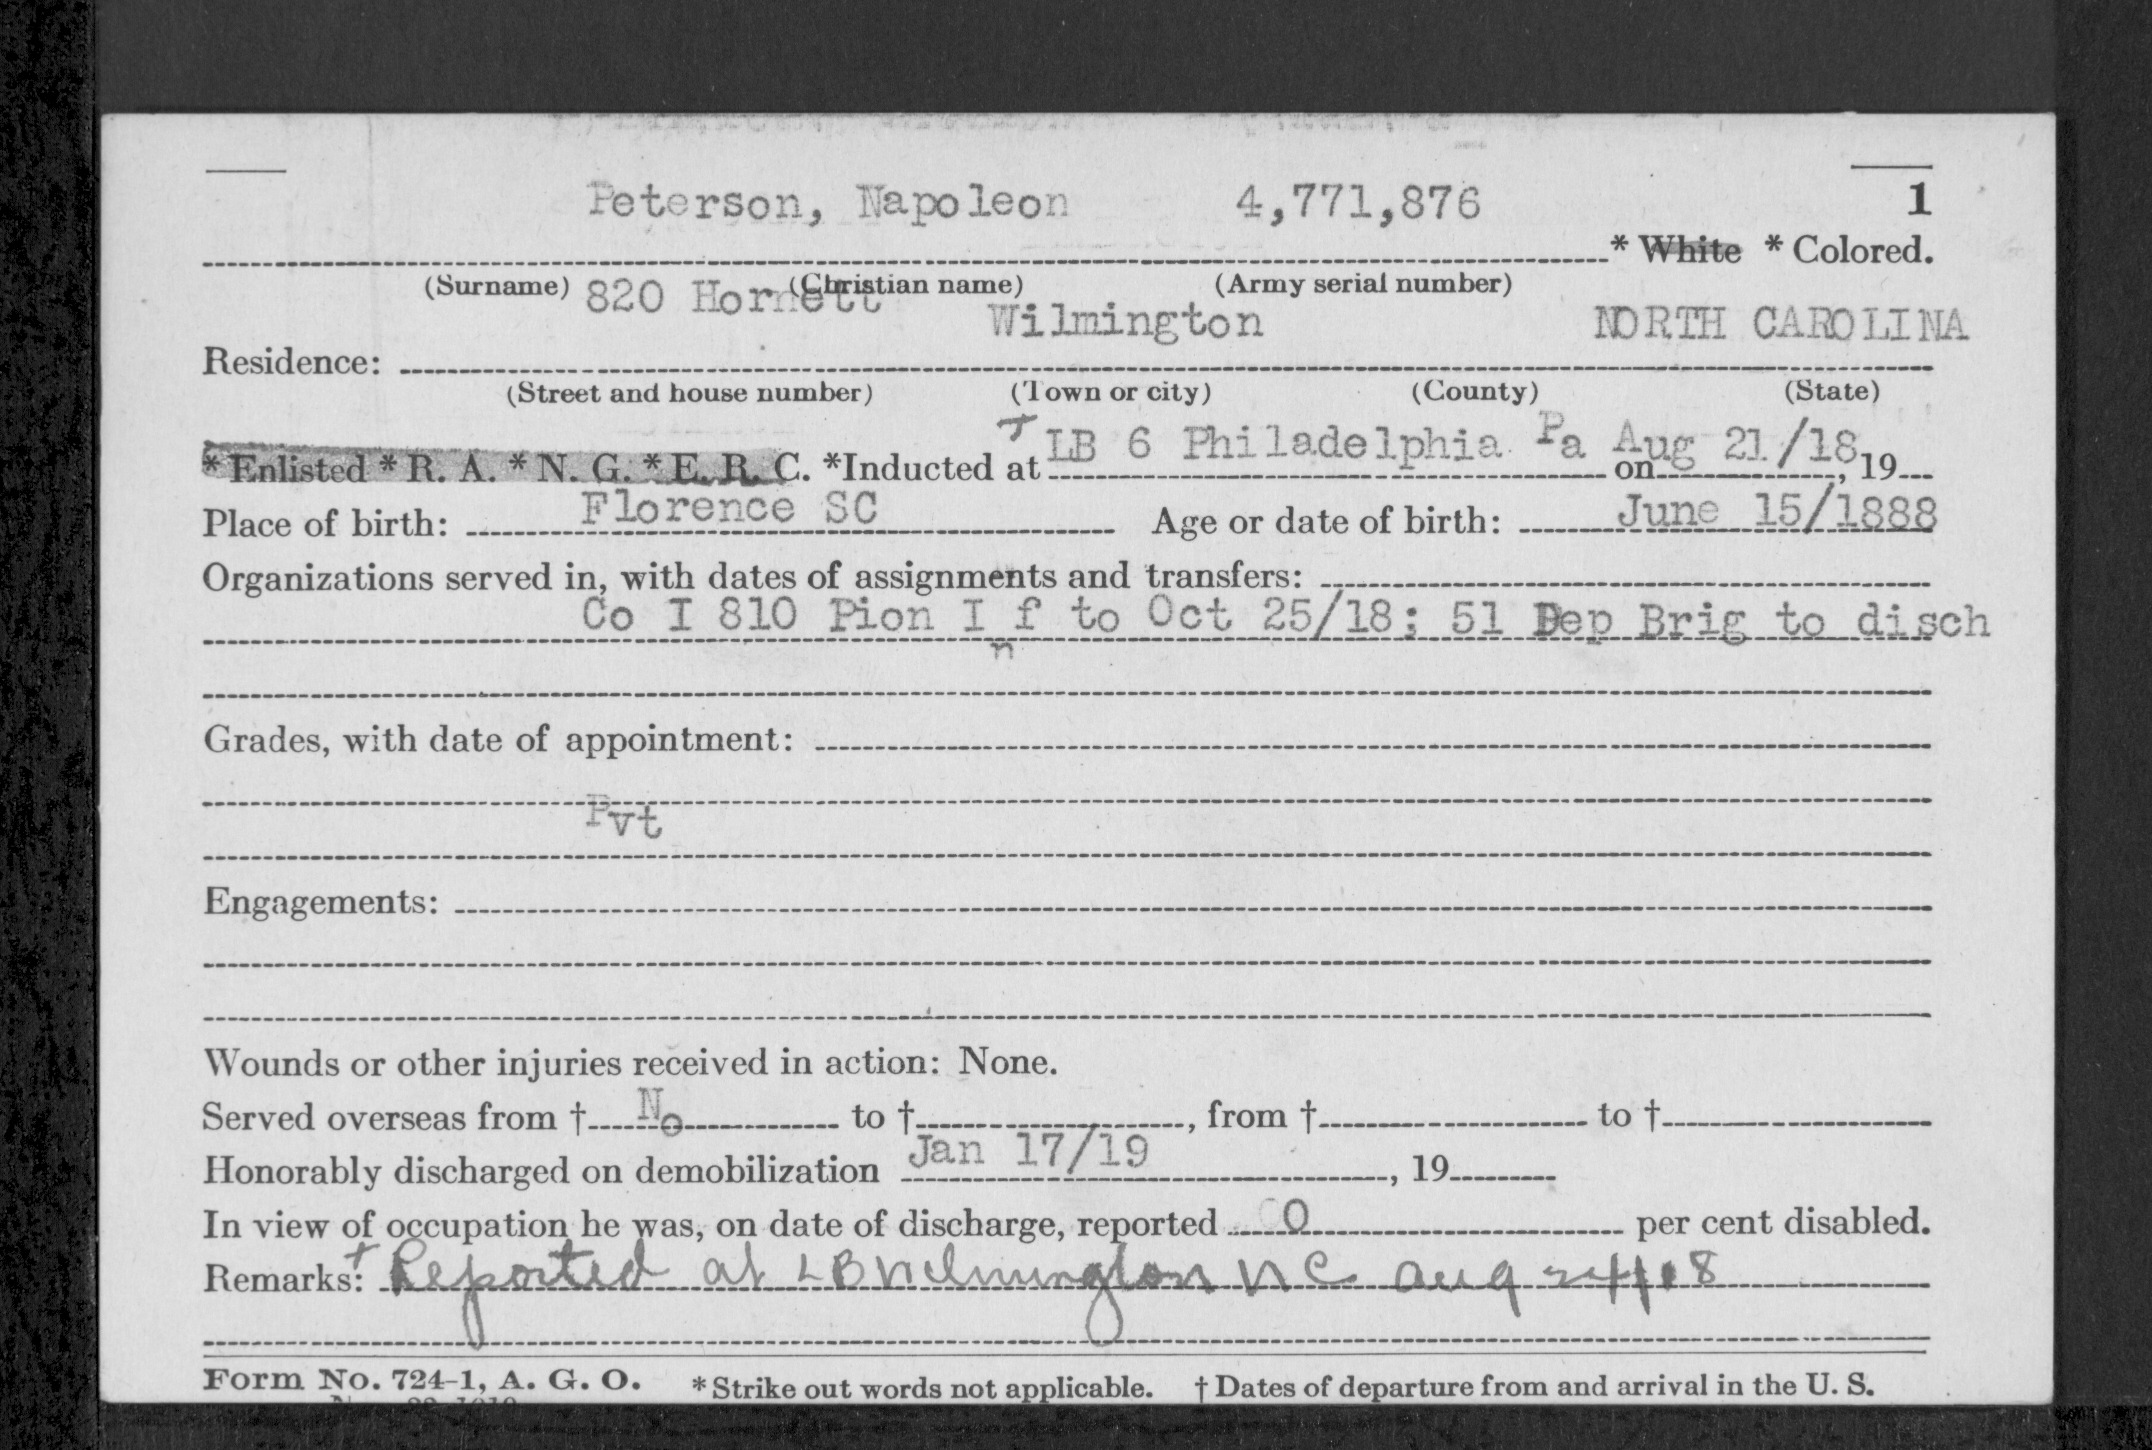 Peterson, Napoleon 4,771,876 1
* White * Colored.
(Surname) (Christian name) (Army serial number)
820 Hornett Wilmington NORTH CAROLINA
Residence:
(Street and house number) (Town or city) (County) (State)
*Enlisted *R. A. *N. G. *E. R. C. *Inducted at + LB 6 Philadelphia Pa on Aug 21/18, 19
Place of birth: Florence SC Age or date of birth: June 15/1888
Organizations served in, with dates of assignments and transfers:
Co I 810 Pion Inf to Oct 25/18; 51 Dep Brig to disch
Grades, with date of appointment:
Pvt
Engagements:
Wounds or other injuries received in action: None.
Served overseas from † No to †, from † to †
Honorably discharged on demobilization Jan 17/19, 19
In view of occupation he was, on date of discharge, reported 0 per cent disabled.
Remarks: + Reported at LB Wilmington NC Aug 24/18
Form No. 724-1, A. G. O. *Strike out words not applicable. † Dates of departure from and arrival in the U. S.